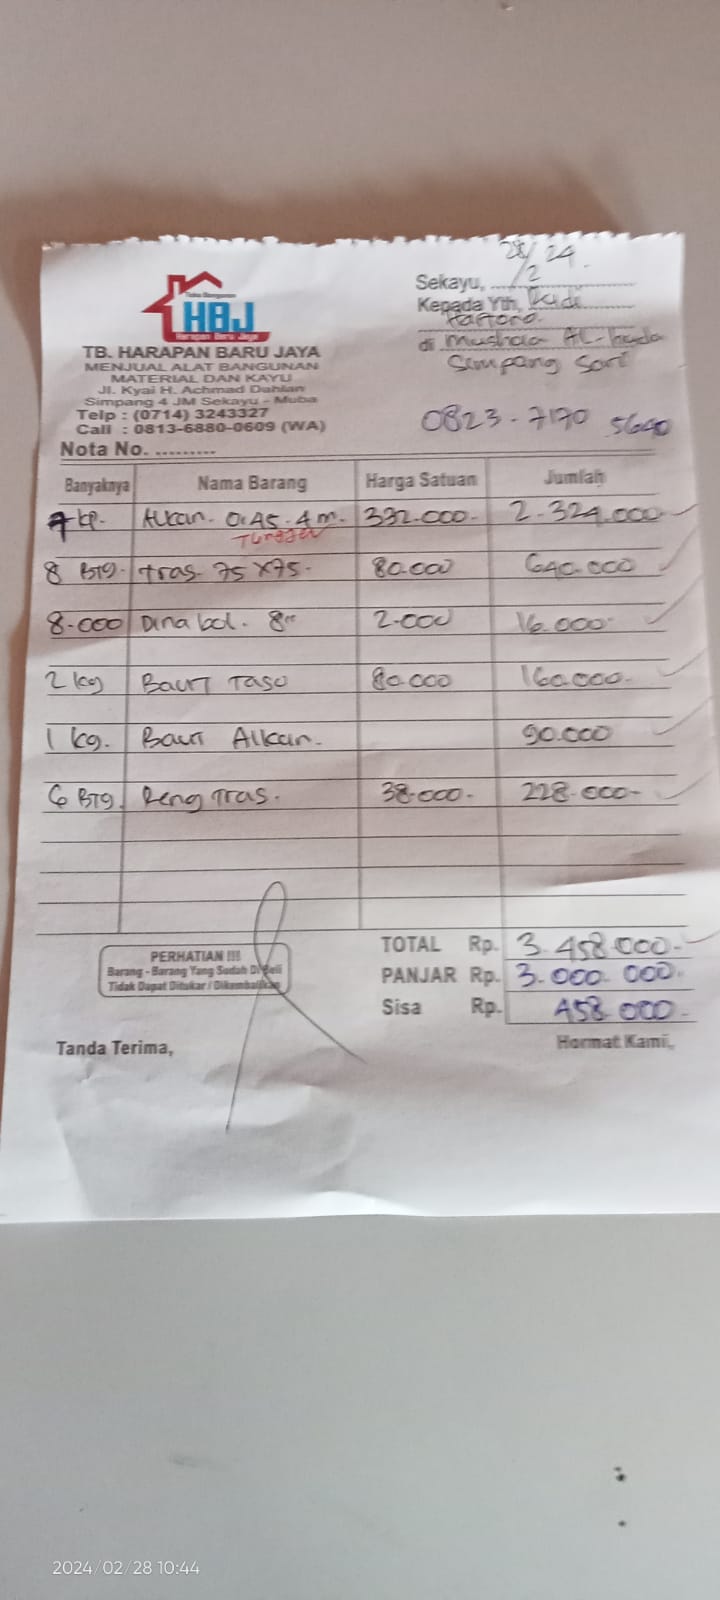 28/2 24.
Sekayu,
Kepada Yth,
Hartono.
di Mushola Al-huda
Simpang Sari
0823-7170 5640
Toko Bangunan
HBJ
Harapan Baru Jaya
TB. HARAPAN BARU JAYA
MENJUAL ALAT BANGUNAN
MATERIAL DAN KAYU
Jl. Kyai H. Achmad Dahlan
Simpang 4 JM Sekayu - Muba
Telp : (0714) 3243327
Call : 0813-6880-0609 (WA)
Nota No. .........
Banyaknya Nama Barang Harga Satuan Jumlah
7 kp. Alkan. 0.45. 4m. 332.000. 2.324.000
8 BTG. tras. 75 x 75. 80.000 640.000
8.000 Dina bol. 8 2.000 16.000.
2 kg Baut Taso 80.000 160.000.
1 kg. Baut Alkan. 90.000
6 BTG. Reng Tras. 38.000. 228.000-
TOTAL Rp. 3.458.000.-
PANJAR Rp. 3.000.000.
Sisa Rp. 458.000.
PERHATIAN !!!
Barang - Barang Yang Sudah Di Beli
Tidak Dapat Ditukar / Dikembalikan
Tanda Terima, Hormat Kami,
2024/02/28 10:44